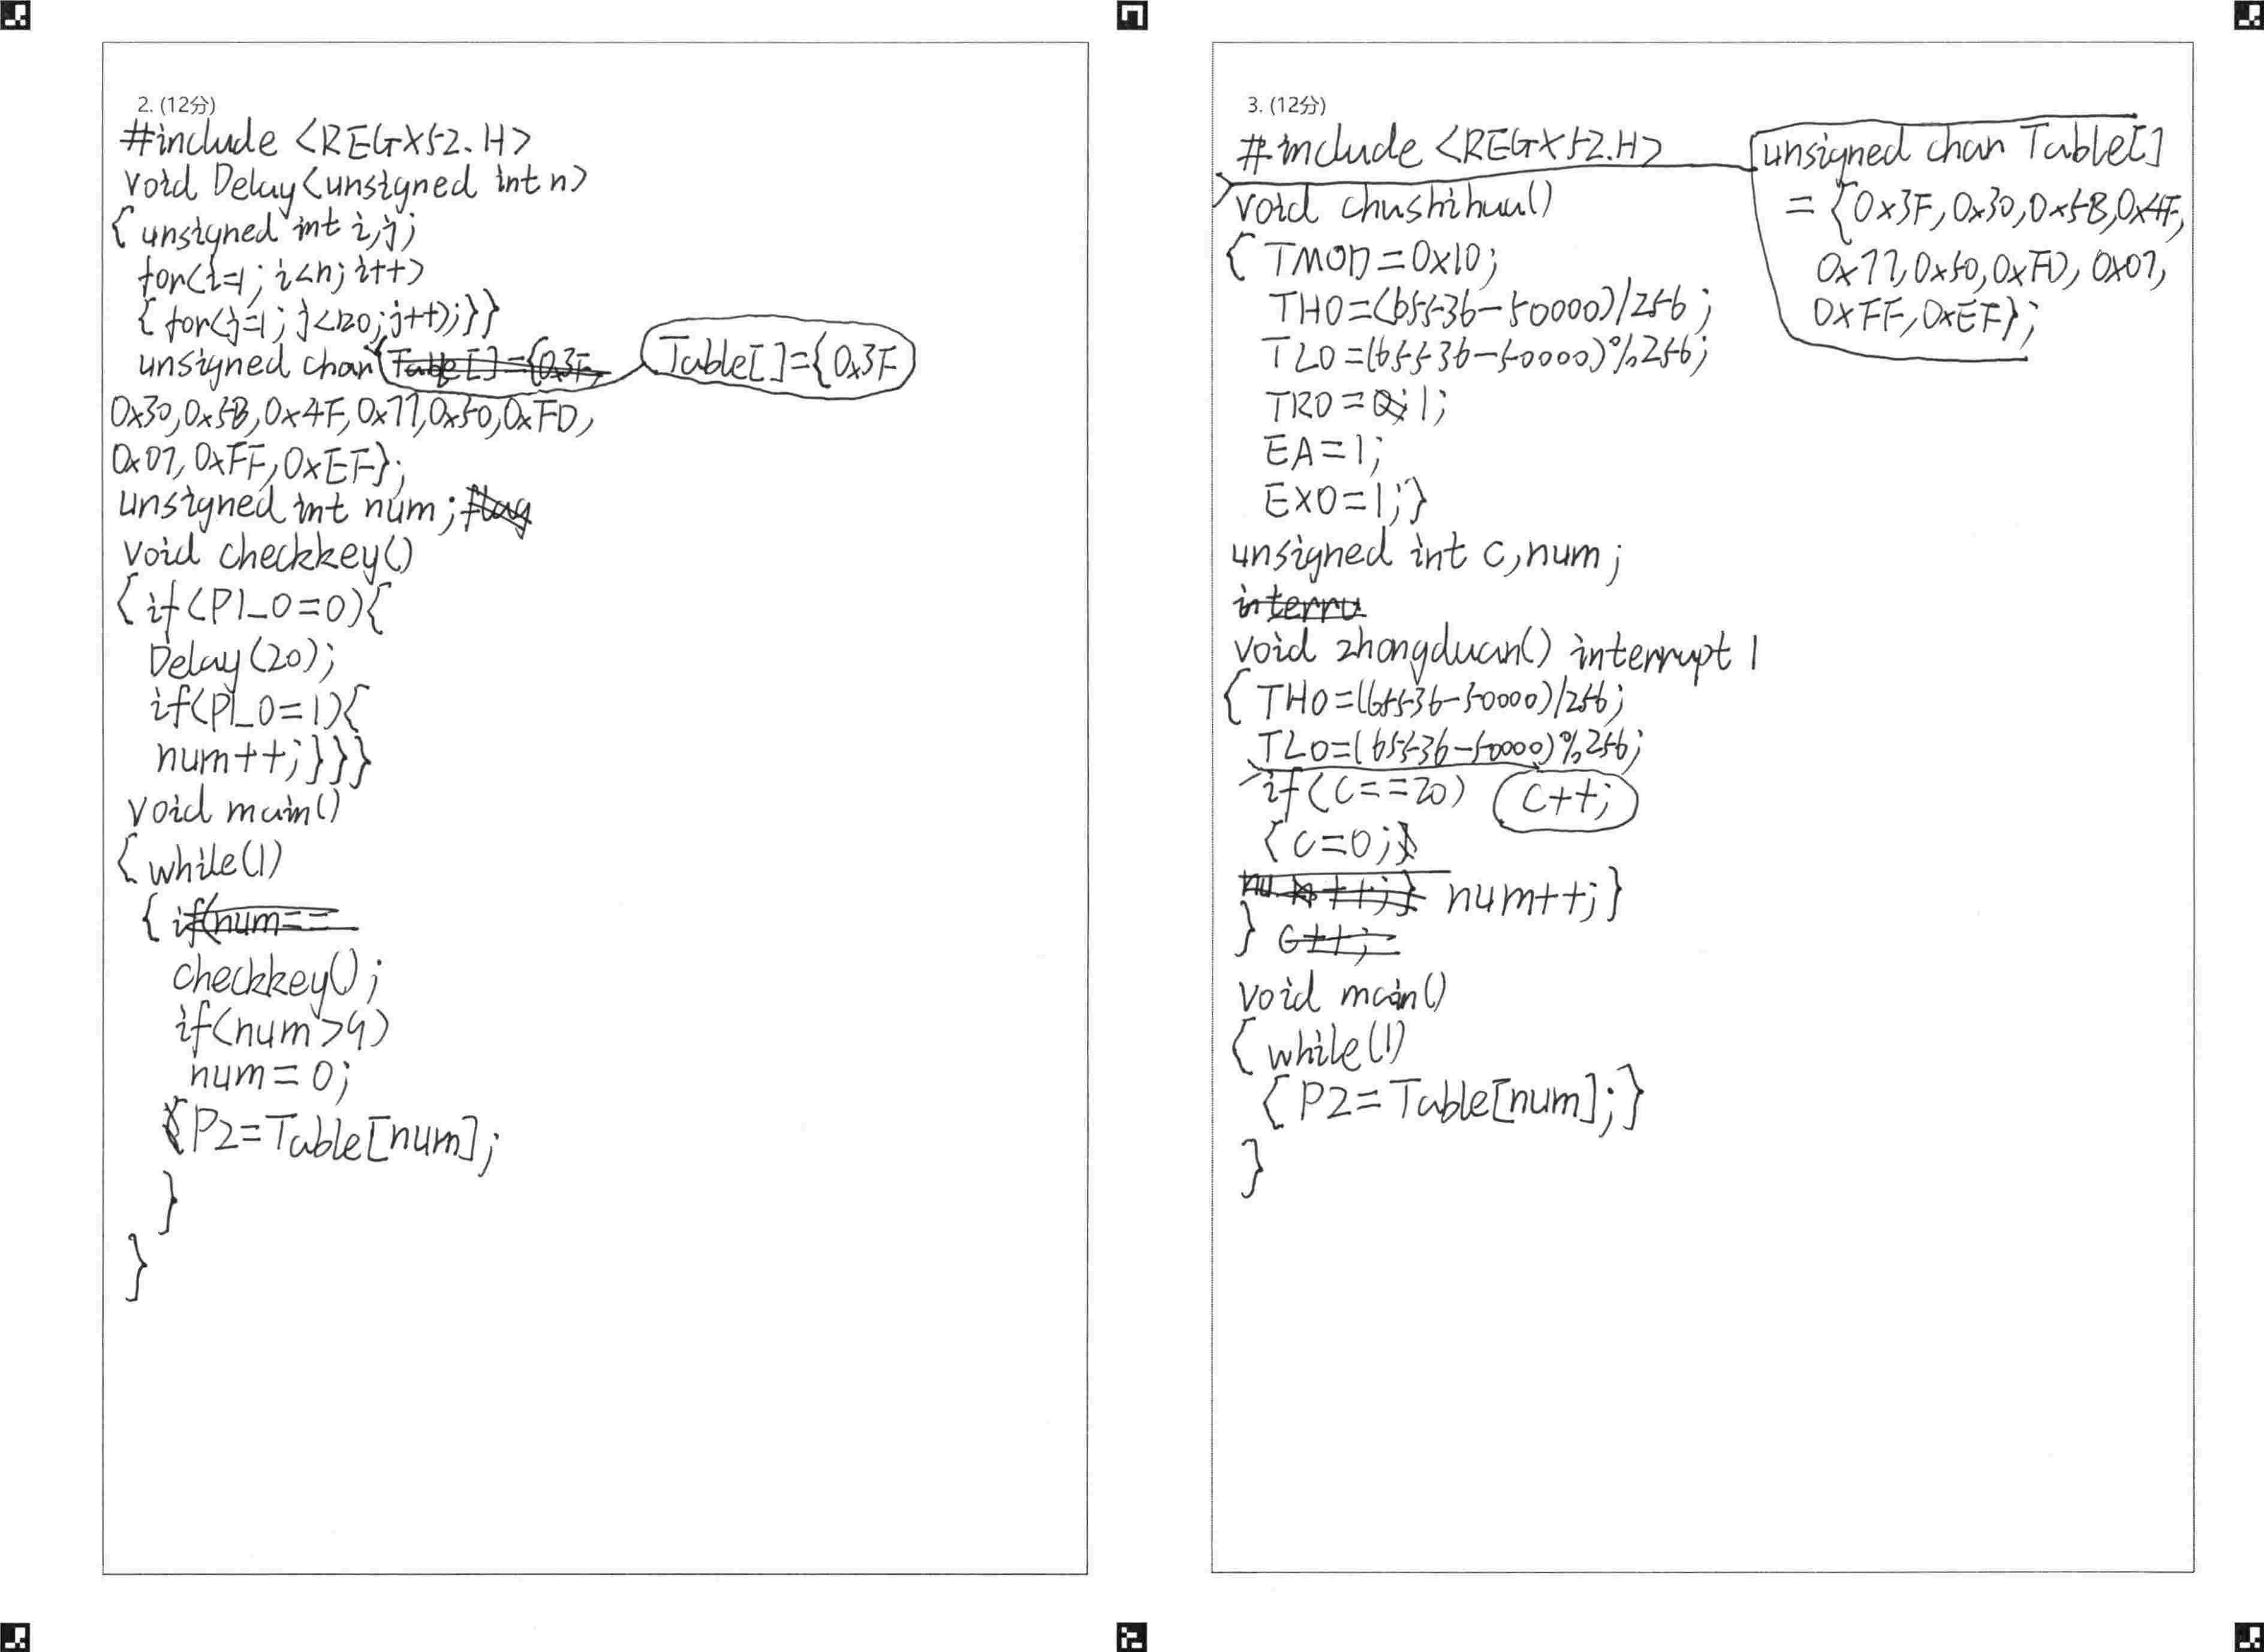 2. (12分)
#include <REGX52.H>
void Delay(unsigned int n)
{ unsigned int i,j;
for(i=1; i<n; i++)
{ for(j=1; j<120; j++);}}
unsigned char Table[]={0x3F
0x30,0x5B,0x4F,0x77,0x50,0xFD,
0x07,0xFF,0xEF};
unsigned int num;
void checkkey()
{ if(P1_0=0){
Delay(20);
if(P1_0=1){
num++;}}}
void main()
{ while(1)
{
checkkey();
if(num>9)
num=0;
P2=Table[num];
}
}
3. (12分)
#include <REGX52.H>
unsigned char Table[]
={0x3F,0x30,0x5B,0x4F,
0x77,0x50,0xFD,0x07,
0xFF,0xEF};
void chushihua()
{ TMOD=0x10;
TH0=(65536-50000)/256;
TL0=(65536-50000)%256;
TR0=1;
EA=1;
EX0=1;}
unsigned int c,num;
void zhongduan() interrupt 1
{ TH0=(65536-50000)/256;
TL0=(65536-50000)%256;
c++;
if(c==20)
{ c=0;
num++;}
}
void main()
{ while(1)
{ P2=Table[num];}
}